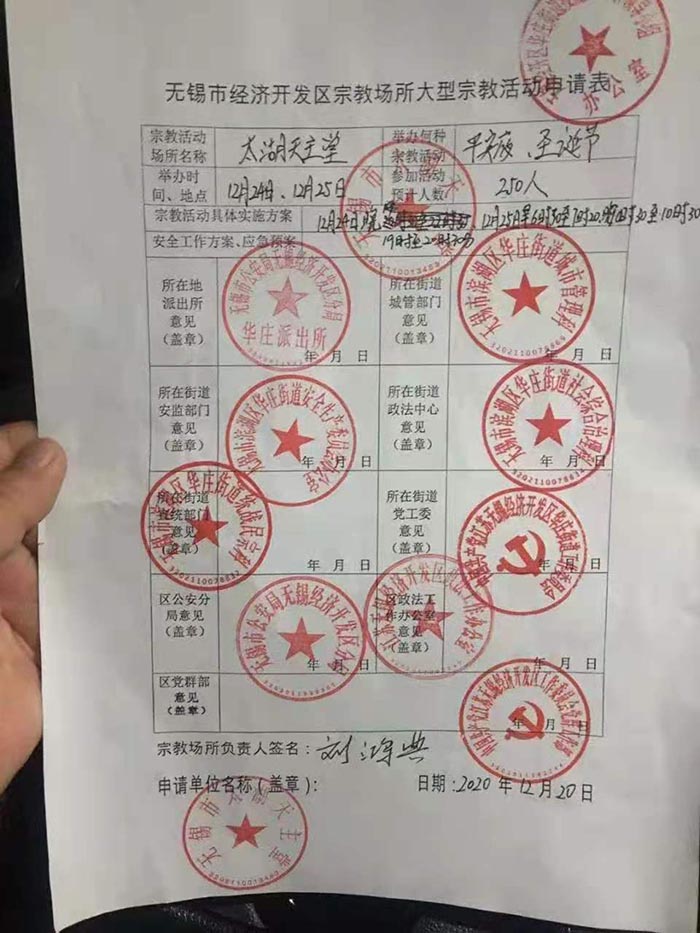 办公室
无锡市经济开发区宗教场所大型宗教活动申请表
宗教活动场所名称 太湖天主堂 举办何种宗教活动 平安夜、圣诞节
举办时间、地点 12月24日、12月25日 参加活动预计人数/ 250人
宗教活动具体实施方案 12月24日晚 12月25日早6时30至7时20
安全工作方案、应急预案 19时至20时30分 至10时30
所在地
派出所
意见
(盖章)
无锡市公安局无锡经济开发区分局
华庄派出所
年 月 日
所在街道
城管部门
意见
(盖章)
无锡市滨湖区华庄街道城市管理科
3202110078869
年 月 日
所在街道
安监部门
意见
(盖章)
无锡市滨湖区华庄街道安全生产委员会办公室
年 月 日
所在街道
政法中心
意见
(盖章)
无锡市滨湖区华庄街道社会综合治理
年 月 日
所在街道
宣统部门
意见
(盖章)
无锡市滨湖区华庄街道统战民宗科
3202110078832
年 月 日
所在街道
党工委
意见
(盖章)
中国共产党江苏无锡经济开发区华庄街道工作委员会
年 月 日
区公安分
局意见
(盖章)
无锡市公安局无锡经济开发区分局
年 月 日
区政法工
作办公室
意见
(盖章)
年 月 日
区党群部
意见
(盖章)
年 月 日
宗教场所负责人签名:刘鸿典
申请单位名称(盖章): 日期:2020年12月20日
无锡市太湖天主堂